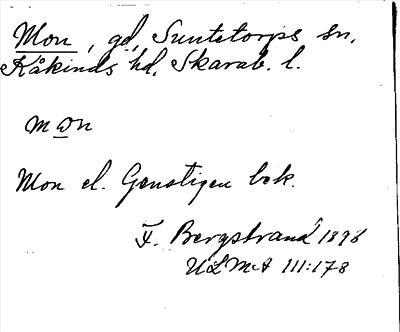 Mon, gd, Suntetorps sn,
Kåkinds hd, Skarab. l.
mωn
Mon el. Genstigen bek.
F. Bergstrand 1896
ULMA 111:178